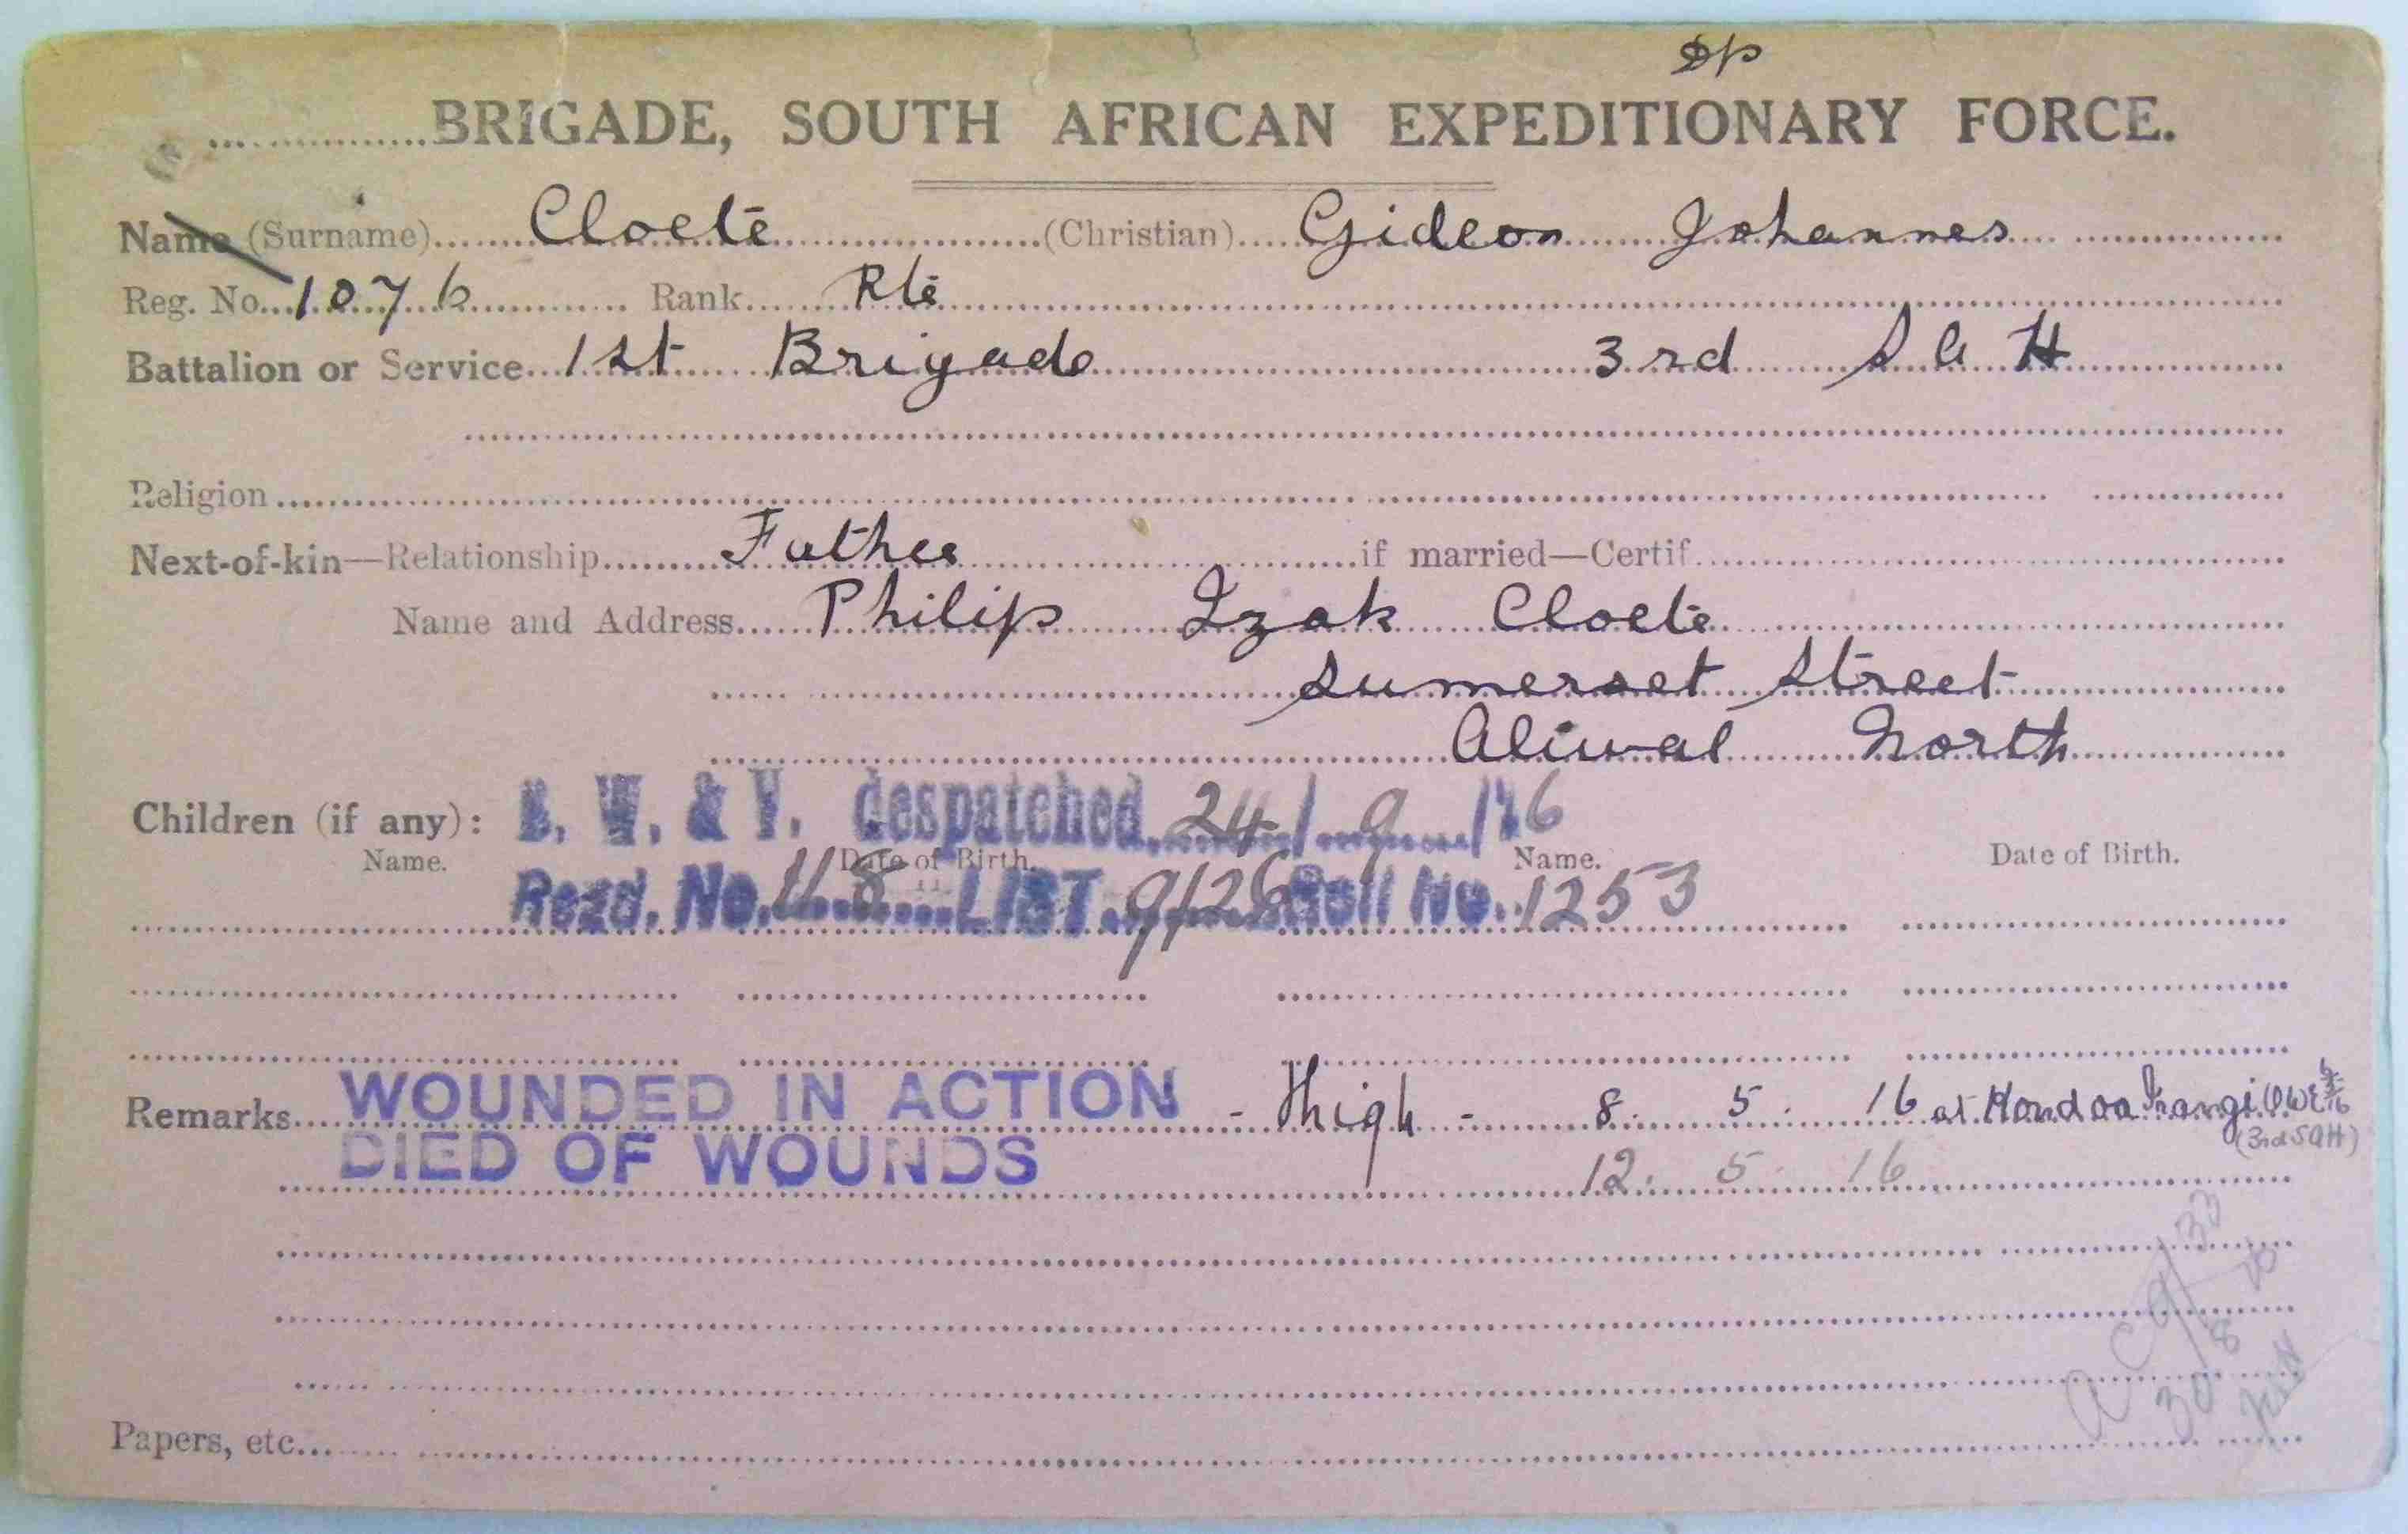 ............BRIGADE, SOUTH AFRICAN EXPEDITIONARY FORCE.
Name (Surname) Cloete (Christian) Gideon Johannes
Reg. No. 1076 Rank Rte
Battalion or Service 1st Brigade 3rd S A H
Religion
Next-of-kin—Relationship Father if married—Certif.
Name and Address Philip Izak Cloete
Sumerset Street
Aliwal North
Children (if any): B. W. & V. despatched 24/9/26
Name. Date of Birth. Name. Date of Birth.
Regd. No. 118 LIST 9/26 Roll No. 1253
Remarks WOUNDED IN ACTION - Thigh - 8. 5. 16 at Kondoa Irangi
(3rd SAH)
DIED OF WOUNDS 12. 5. 16
Papers, etc.